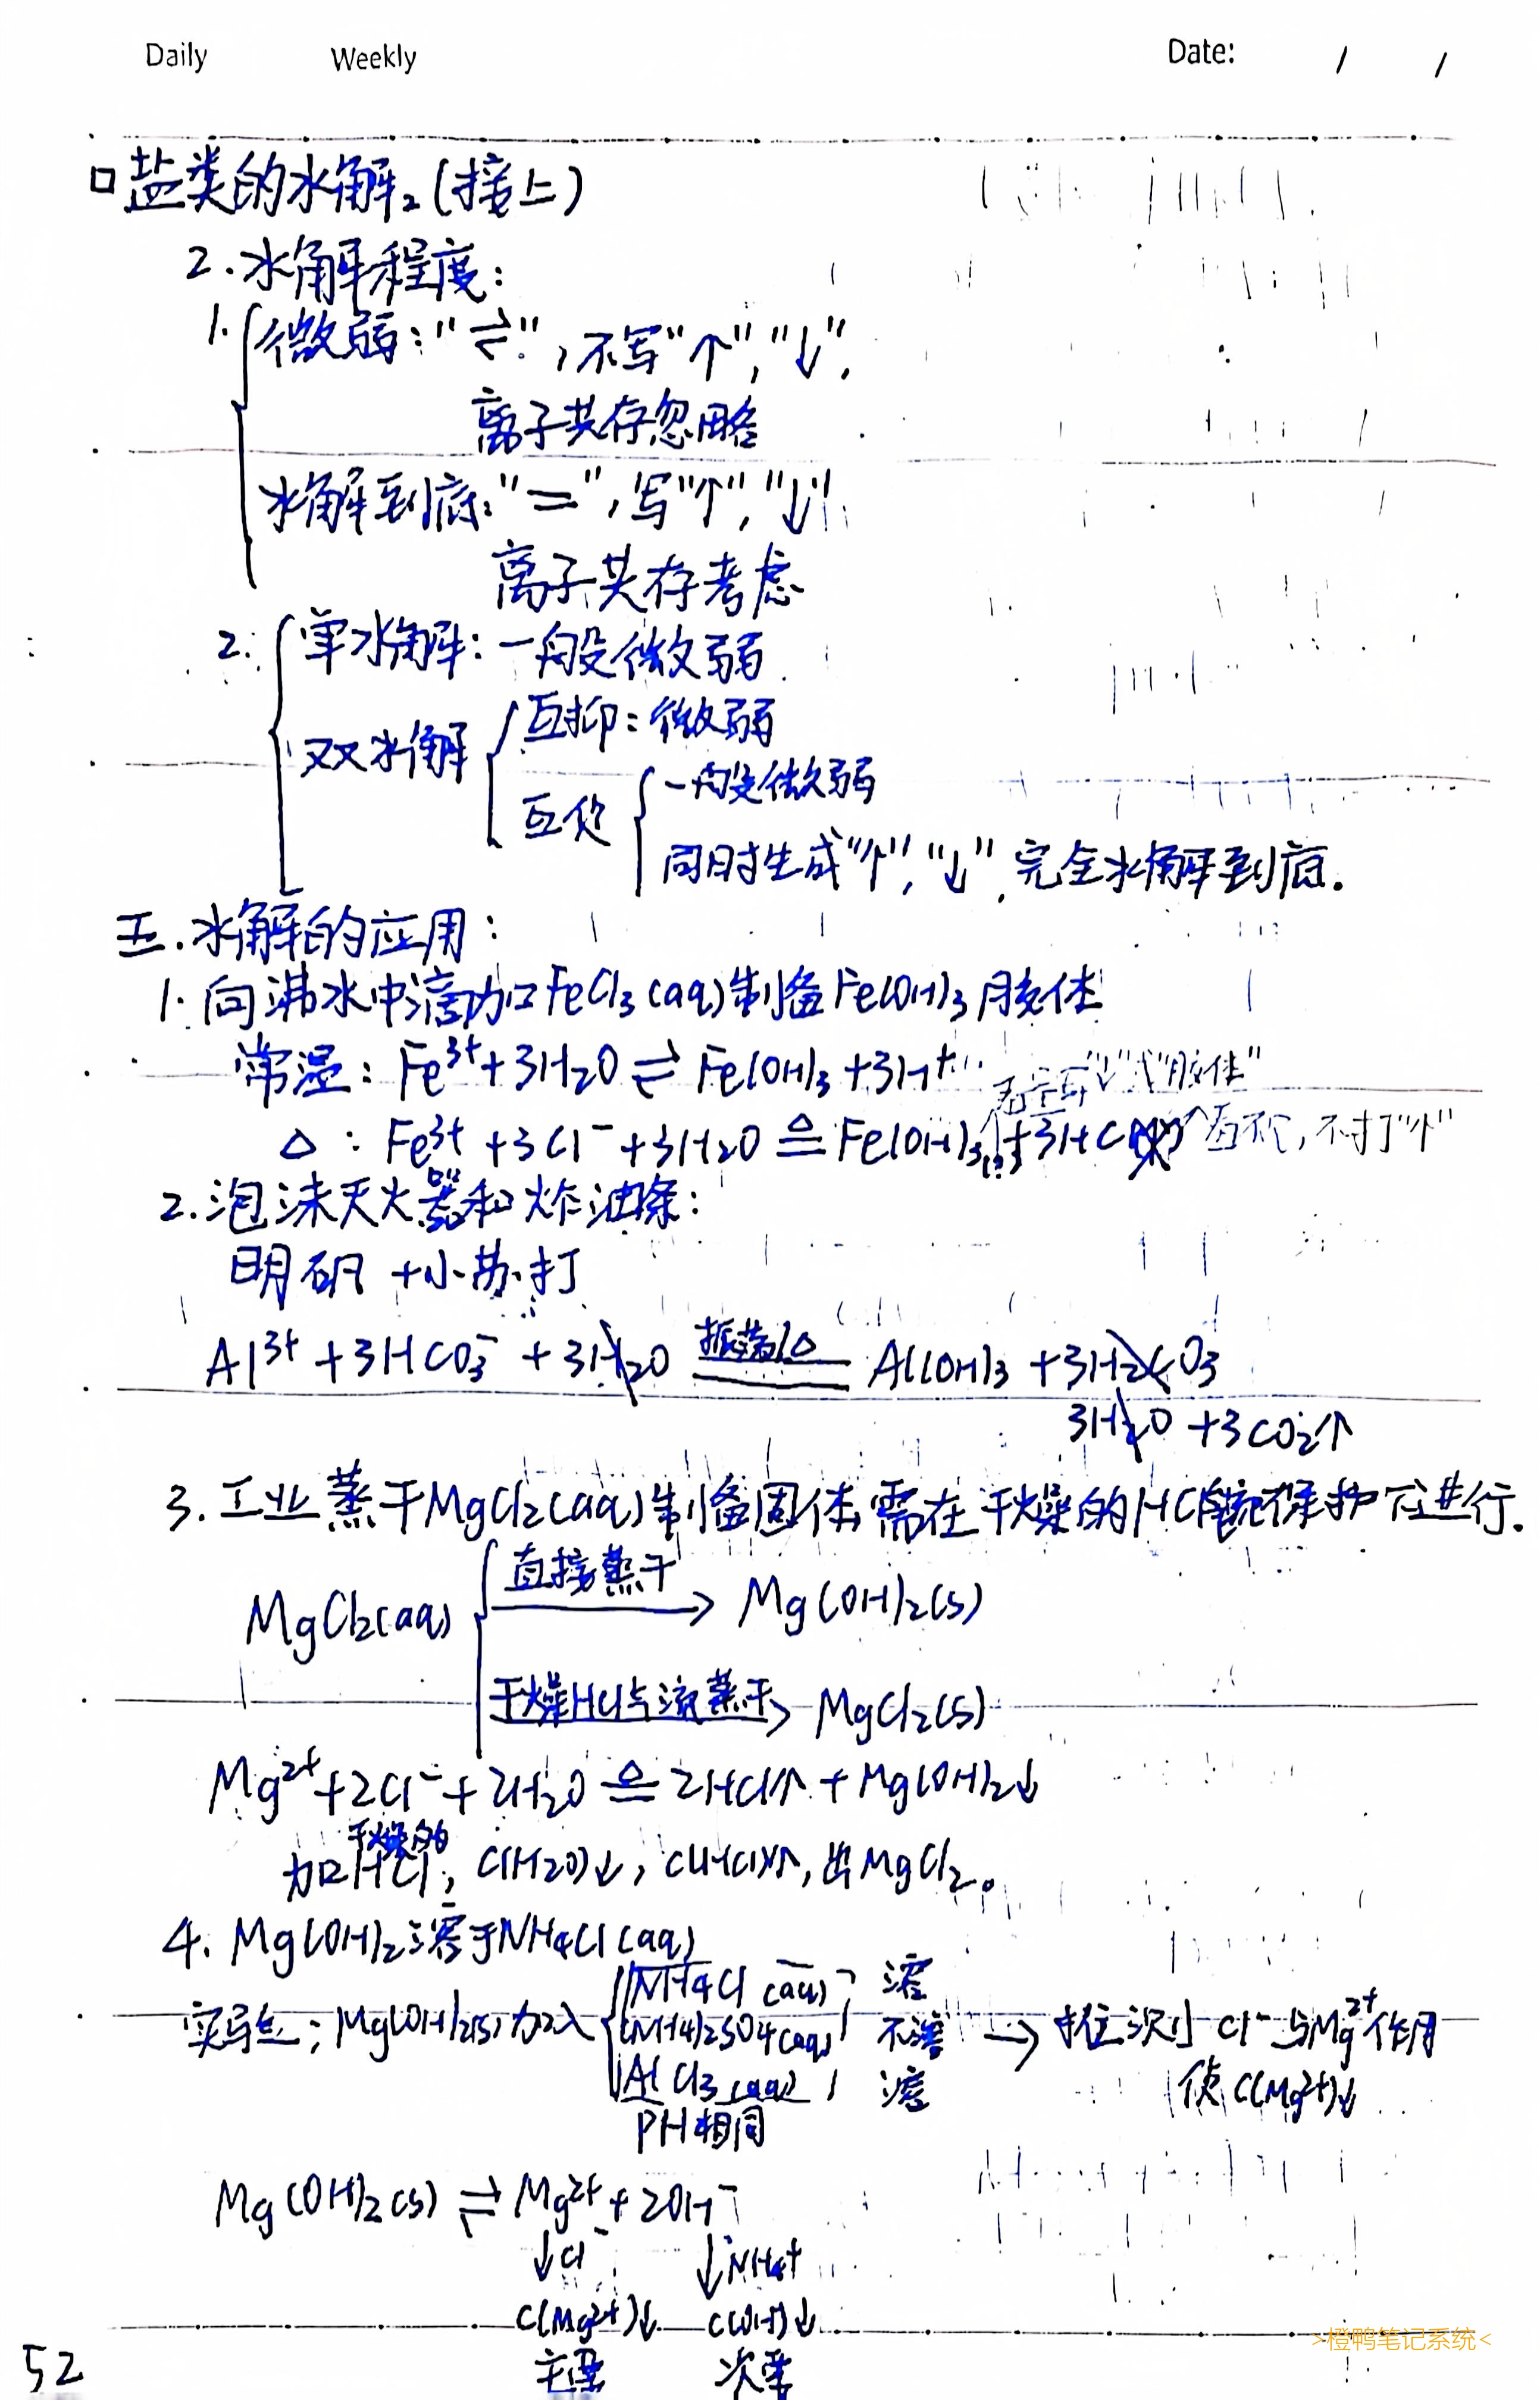 Daily Weekly Date: / /
盐类的水解₂(接上)
2.水解程度:
1. 微弱:"⇌",不写"↑","↓".
离子共存忽略
水解到底:"=",写"↑","↓"
离子共存考虑
2. 单水解:一般微弱
双水解 互抑:微弱
互促 一般微弱
同时生成"↑","↓",完全水解到底.
五.水解的应用:
1.向沸水中滴加FeCl₃(aq)制备Fe(OH)₃胶体
常温:Fe³⁺+3H₂O⇌Fe(OH)₃+3H⁺
"↓"或"胶体"
△:Fe³⁺+3Cl⁻+3H₂O ≜ Fe(OH)₃ +3HCl 不打"↑"
2.泡沫灭火器和炸油条:
明矾+小苏打
Al³⁺+3HCO₃⁻+3H₂O 振荡/△ Al(OH)₃+3H₂CO₃
3H₂O+3CO₂↑
3.工业蒸干MgCl₂(aq)制备固体,需在干燥的HCl氛保护下进行.
直接蒸干
MgCl₂(aq) → Mg(OH)₂(s)
干燥HCl气流蒸干→ MgCl₂(s)
Mg²⁺+2Cl⁻+2H₂O ≜ 2HCl↑+Mg(OH)₂↓
干燥的
加HCl,C(H₂O)↓,C(HCl)↑,出MgCl₂。
4.Mg(OH)₂溶于NH₄Cl(aq)
NH₄Cl(aq),溶
实验:Mg(OH)₂(s)加入 (NH₄)₂SO₄(aq),不溶 → 推测Cl⁻与Mg²⁺作用
AlCl₃(aq),溶 使C(Mg²⁺)↓
PH相同
Mg(OH)₂(s)⇌Mg²⁺+2OH⁻
↓Cl⁻ ↓NH₄⁺
C(Mg²⁺)↓ C(OH⁻)↓
主要 次要
52
>橙鸭笔记系统<